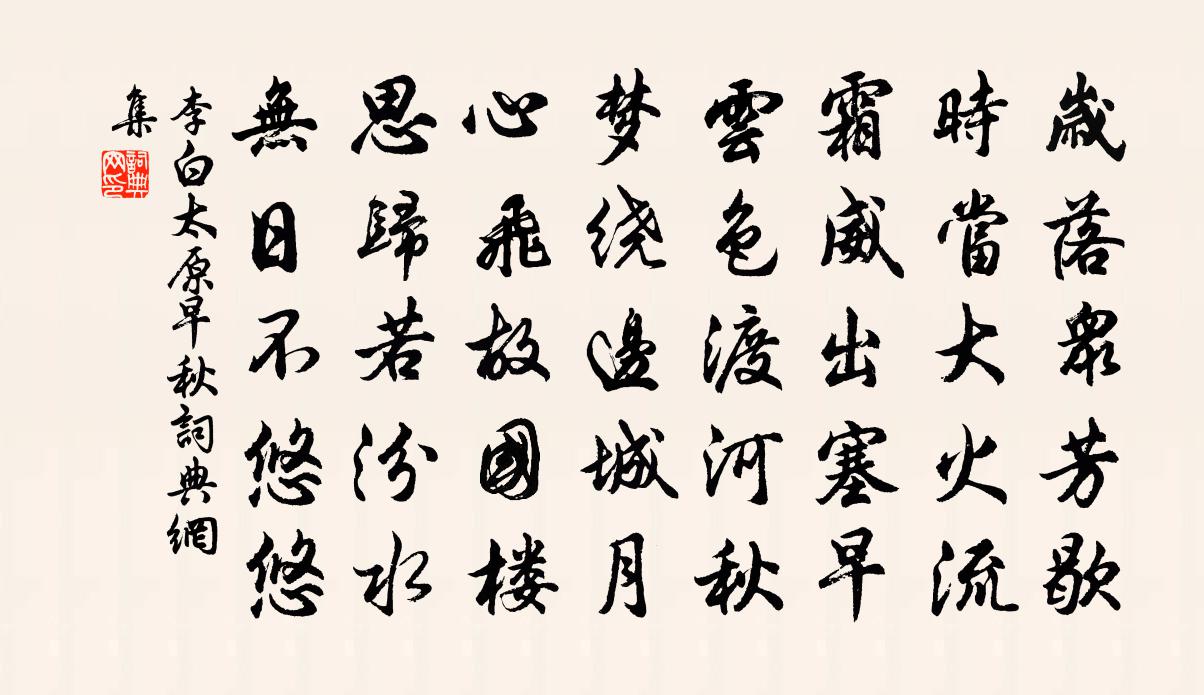 歲落眾芳歇
時當大火流
霜威出塞早
雲色渡河秋
梦绕邊城月
心飛故國楼
思歸若汾水
無日不悠悠
李白太原早秋詞典網
集
詞典
网印